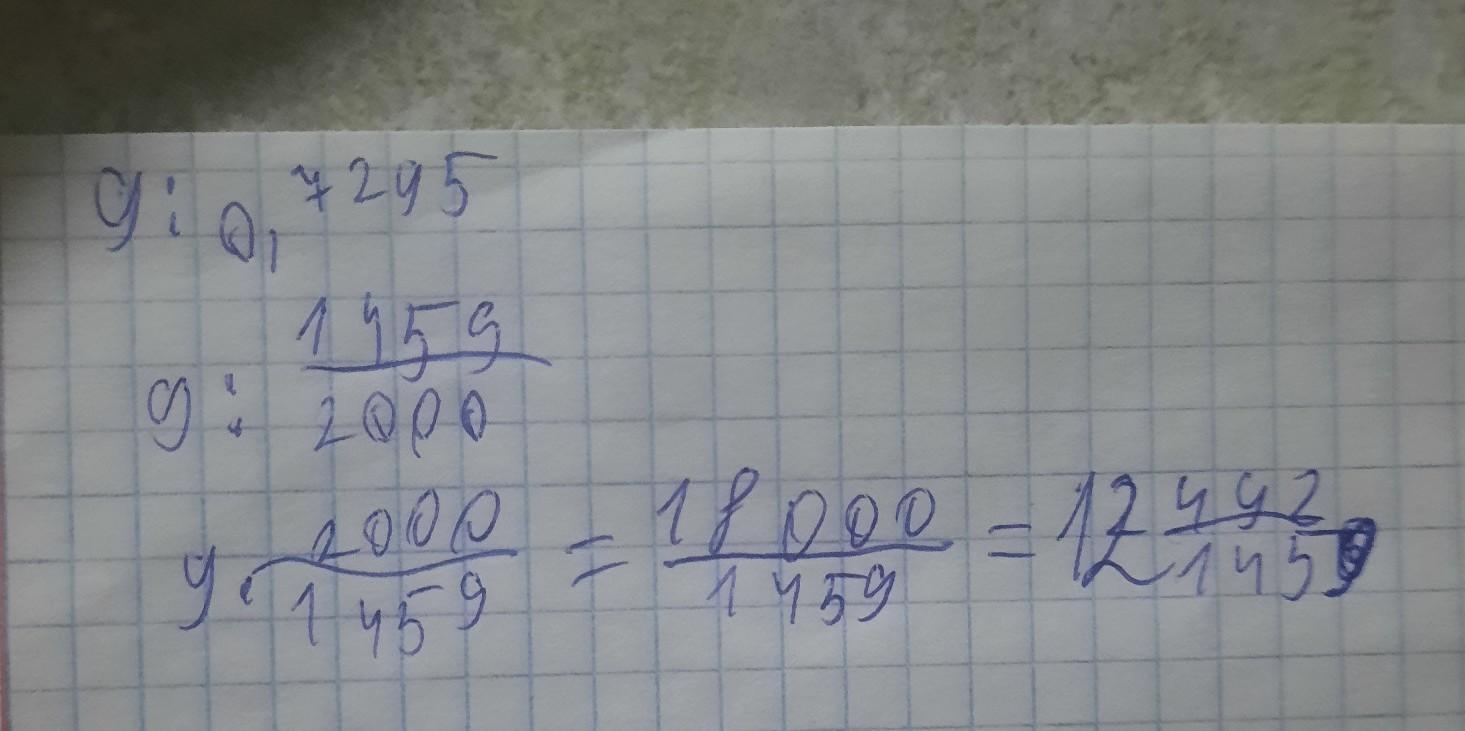 9 : 0,7295
9 : 1459/2000
9 · 2000/1459 = 18000/1459 = 12 492/1459